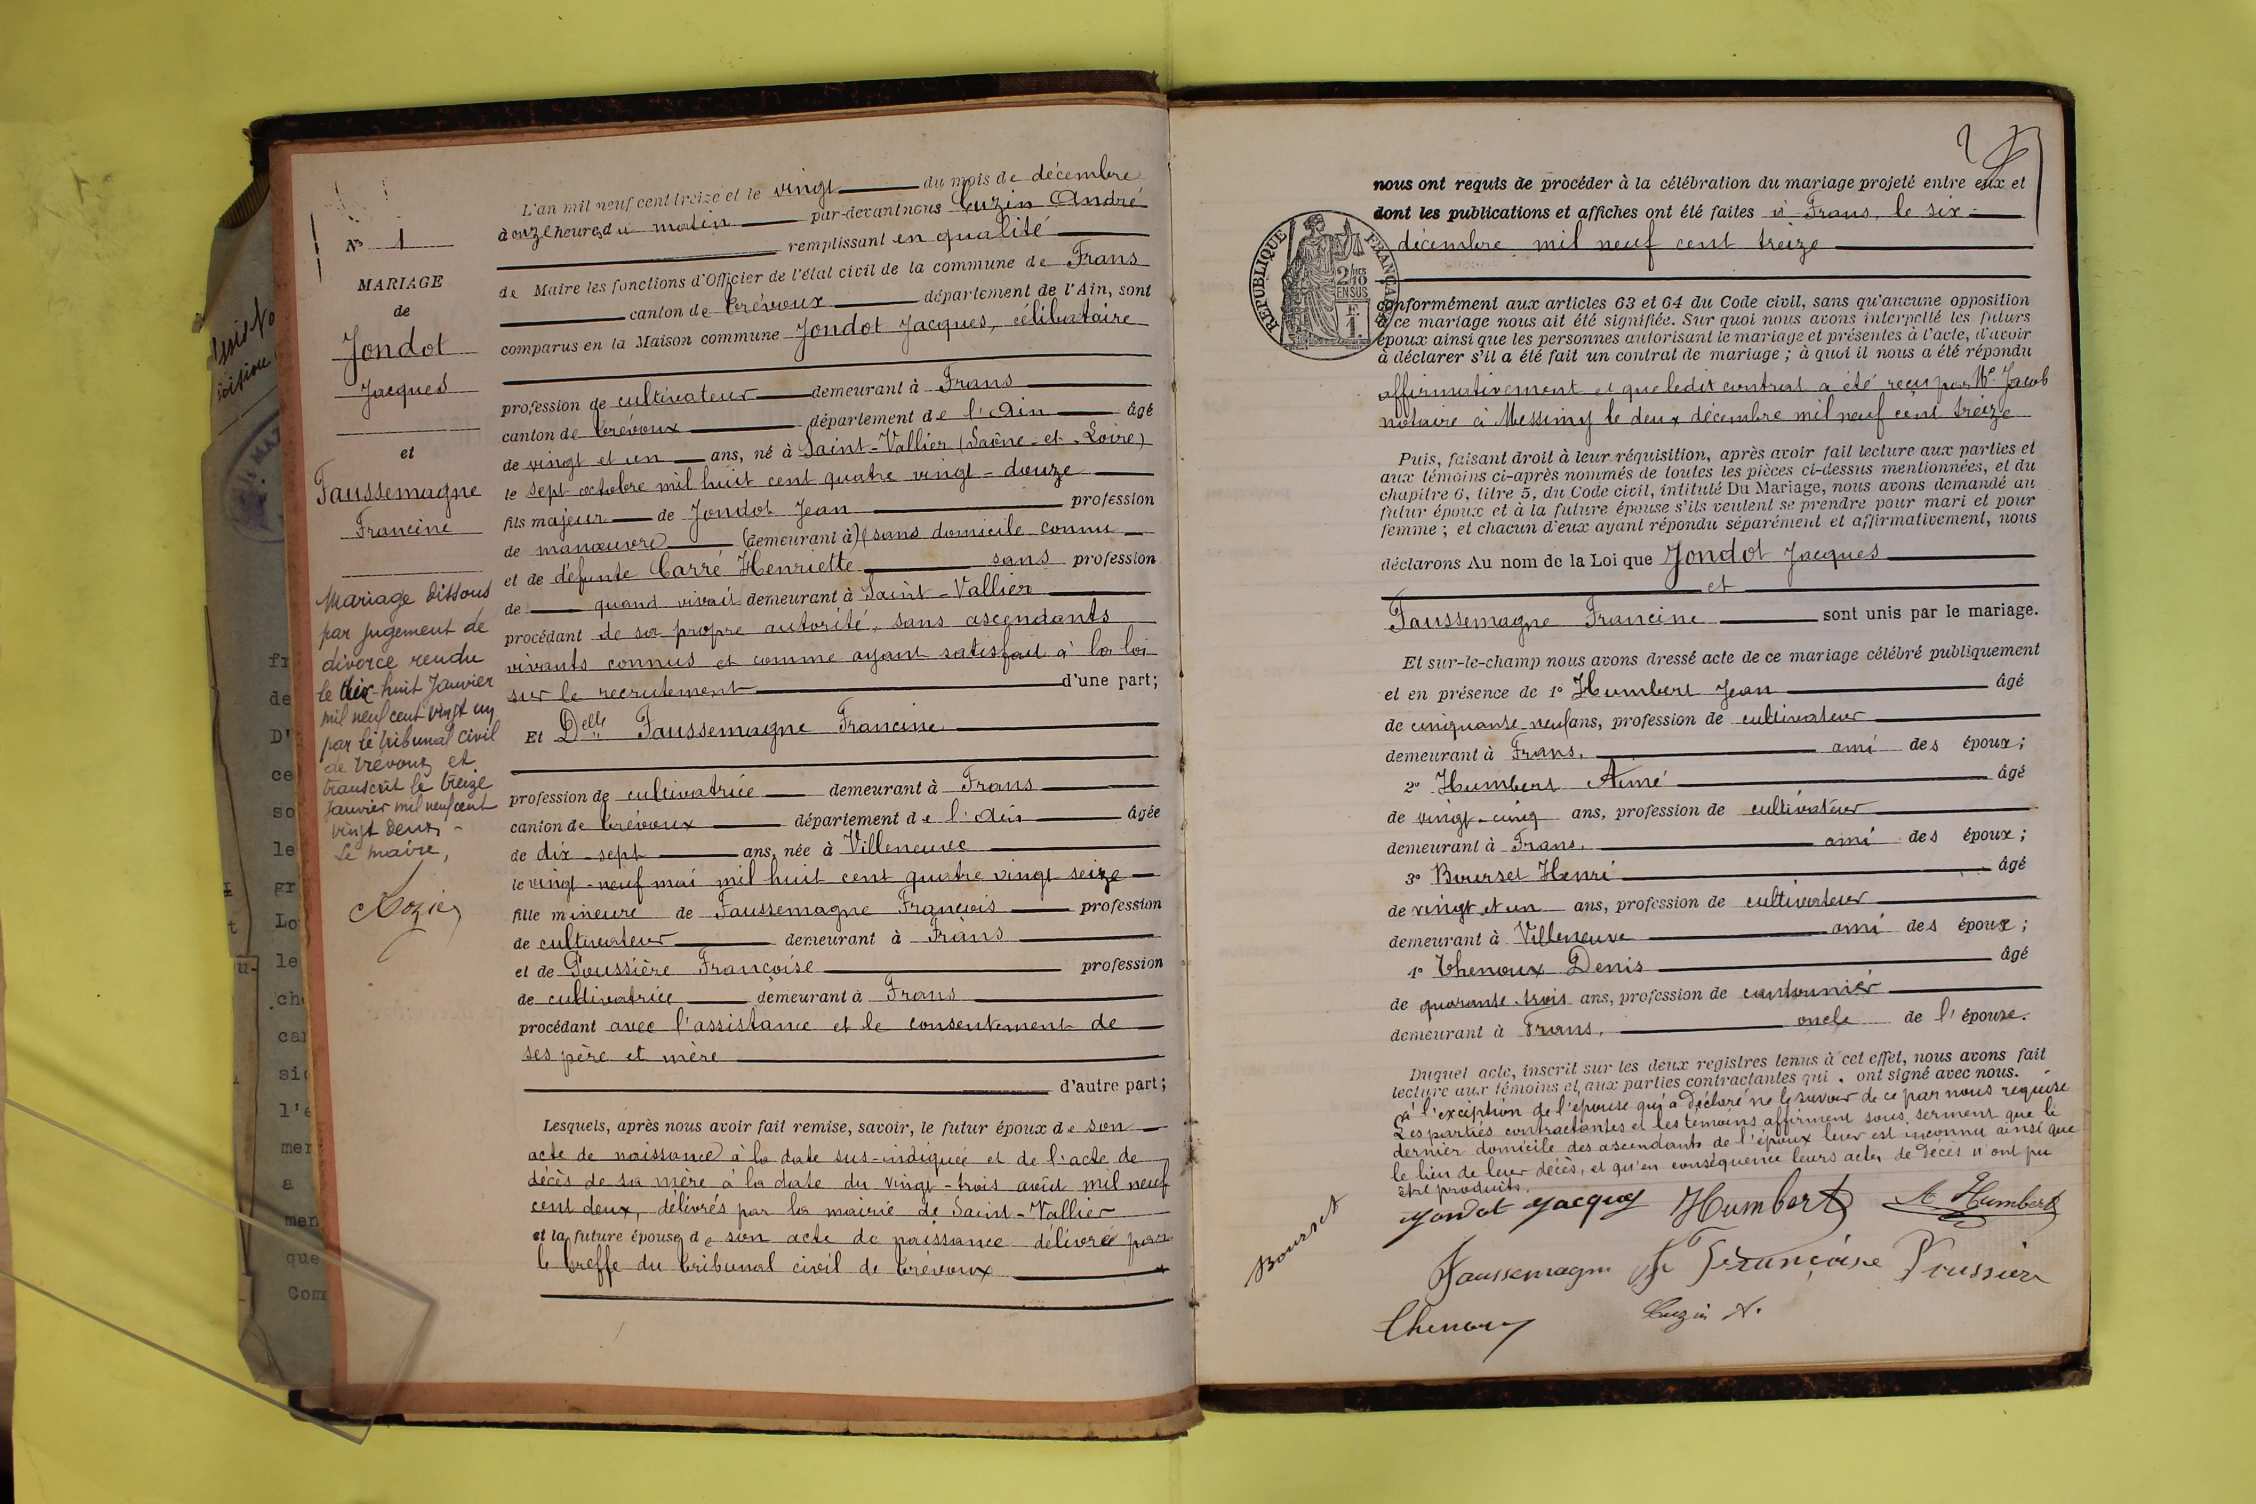 N° 1
MARIAGE
de
Jondot
Jacques
et
Faussemagne
Francine
Mariage dissous
par jugement de
divorce rendu
le dix-huit Janvier
mil neuf cent vingt un
par le tribunal civil
de Trévoux et
transcrit le treize
Janvier mil neuf cent
vingt deux -
Le maire,
L'an mil neuf cent treize et le vingt du mois de décembre
à onze heures du matin par-devant nous Cuzin André
remplissant en qualité
de Maire les fonctions d'Officier de l'état civil de la commune de Frans
canton de Trévoux département de l'Ain, sont
comparus en la Maison commune Jondot Jacques, célibataire
profession de cultivateur demeurant à Frans
canton de Trévoux département de l'Ain âgé
de vingt et un ans, né à Saint-Vallier (Saône-et-Loire)
le sept octobre mil huit cent quatre vingt-douze
fils majeur de Jondot Jean profession
de manœuvre (demeurant à) (sans domicile connu
et de défunte Carré Henriette sans profession
de quand vivait demeurant à Saint-Vallier
procédant de sa propre autorité, sans ascendants
vivants connus et comme ayant satisfait à la loi
sur le recrutement d'une part;
Et Delle Faussemagne Francine
profession de cultivatrice demeurant à Frans
canton de Trévoux département de l'Ain âgée
de dix-sept ans, née à Villeneuve
le vingt-neuf mai mil huit cent quatre vingt seize
fille mineure de Faussemagne François profession
de cultivateur demeurant à Frans
et de Poussière Françoise profession
de cultivatrice demeurant à Frans
procédant avec l'assistance et le consentement de
ses père et mère
d'autre part;
Lesquels, après nous avoir fait remise, savoir, le futur époux de son
acte de naissance à la date sus-indiquée et de l'acte de
décès de sa mère à la date du vingt-trois août mil neuf
cent deux, délivrés par la mairie de Saint-Vallier
et la future épouse de son acte de naissance délivré par
le Greffe du Tribunal civil de Trévoux
nous ont requis de procéder à la célébration du mariage projeté entre eux et
dont les publications et affiches ont été faites à Frans, le six
décembre mil neuf cent treize
RÉPUBLIQUE FRANÇAISE
conformément aux articles 63 et 64 du Code civil, sans qu'aucune opposition
à ce mariage nous ait été signifiée. Sur quoi nous avons interpellé les futurs
époux ainsi que les personnes autorisant le mariage et présentes à l'acte, d'avoir
à déclarer s'il a été fait un contrat de mariage; à quoi il nous a été répondu
affirmativement et que ledit contrat a été reçu par Me Jacob
notaire à Messimy le deux décembre mil neuf cent treize
Puis, faisant droit à leur réquisition, après avoir fait lecture aux parties et
aux témoins ci-après nommés de toutes les pièces ci-dessus mentionnées, et du
chapitre 6, titre 5, du Code civil, intitulé Du Mariage, nous avons demandé au
futur époux et à la future épouse s'ils veulent se prendre pour mari et pour
femme; et chacun d'eux ayant répondu séparément et affirmativement, nous
déclarons Au nom de la Loi que Jondot Jacques
et
Faussemagne Francine sont unis par le mariage.
Et sur-le-champ nous avons dressé acte de ce mariage célébré publiquement
et en présence de 1° Humbert Jean âgé
de cinquante neuf ans, profession de cultivateur
demeurant à Frans, ami des époux;
2° Humbert Aimé âgé
de vingt-cinq ans, profession de cultivateur
demeurant à Frans, ami des époux;
3° Bourset Henri âgé
de vingt et un ans, profession de cultivateur
demeurant à Villeneuve ami des époux;
4° Thenoux Denis âgé
de quarante trois ans, profession de cantonnier
demeurant à Frans, oncle de l'épouse.
Duquel acte, inscrit sur les deux registres tenus à cet effet, nous avons fait
lecture aux témoins et aux parties contractantes qui ont signé avec nous.
à l'exception de l'épouse qui a déclaré ne le savoir de ce par nous requise
Les parties contractantes et les témoins affirment sous serment que le
dernier domicile des ascendants de l'époux leur est inconnu ainsi que
le lieu de leur décès, et qu'en conséquence leurs actes de décès n'ont pu
être produits.
Jondot Jacques Humbert A Humbert
Bourset
Faussemagne Françoise Poussière
Thenoux
Cuzin A.